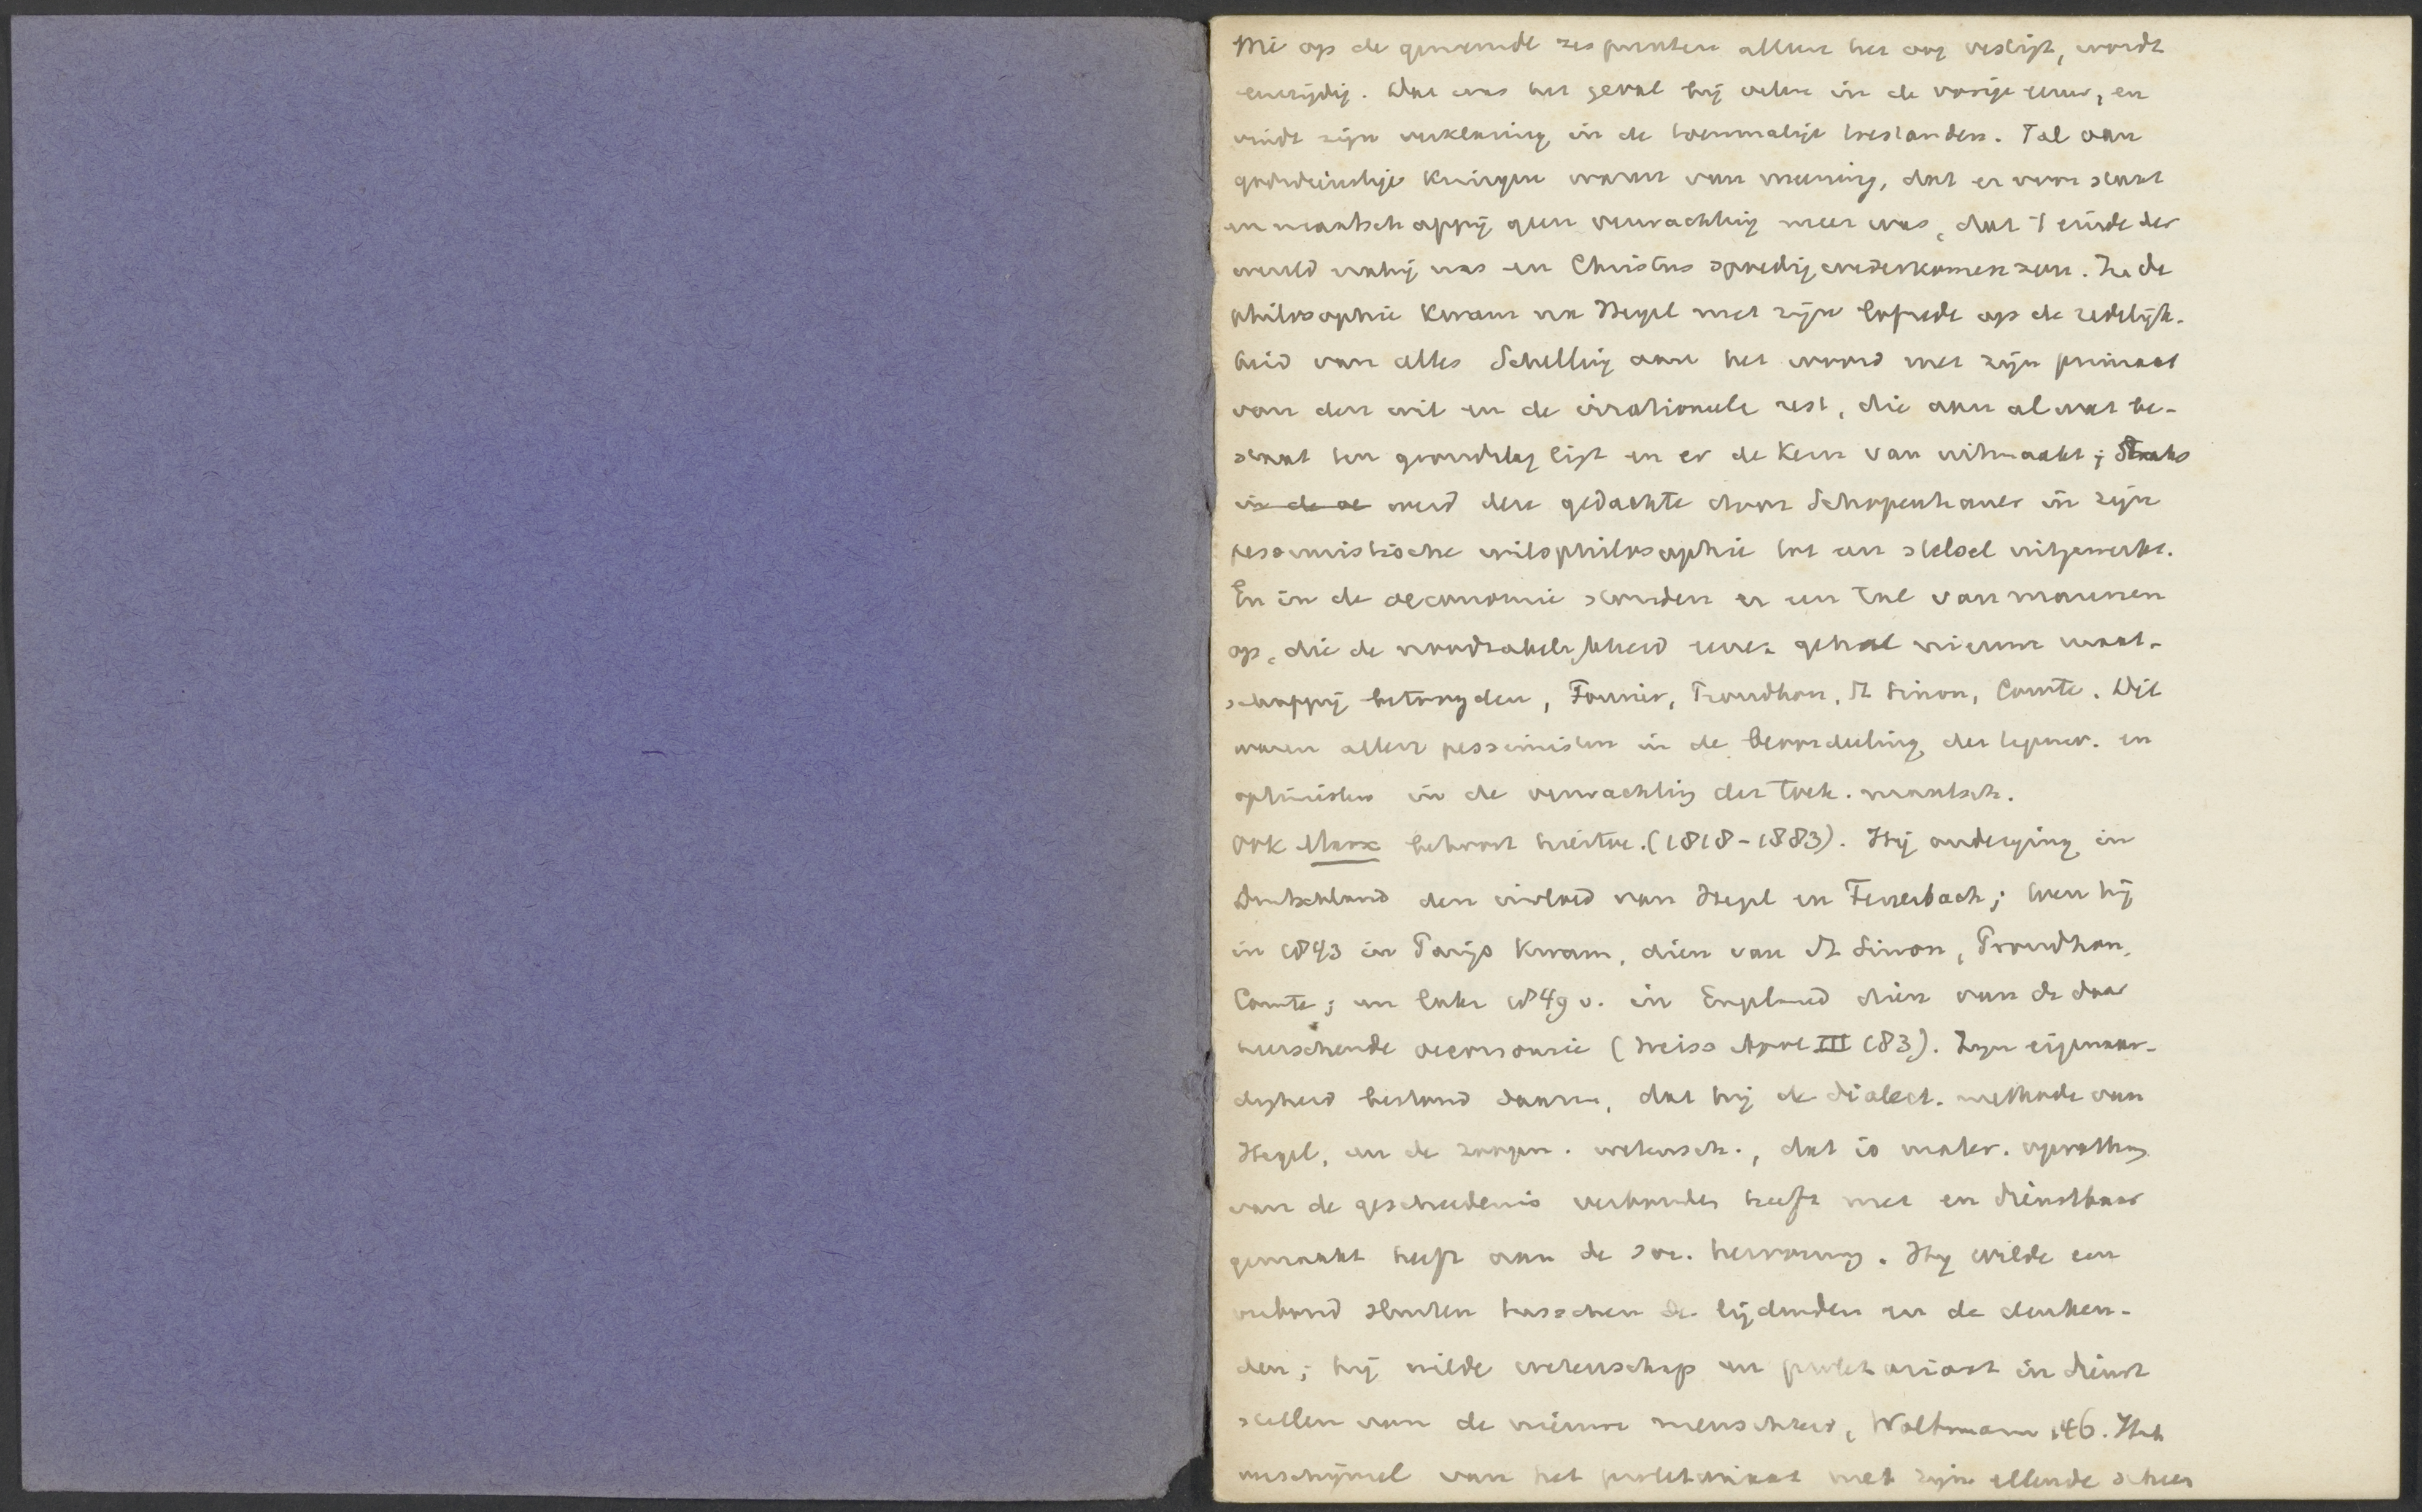 Wie op de genoemde zes punten alleen het oog vestigt, wordt
eenzijdig. Dat was het geval bij velen in de vorige eeuw, en
vindt zijn verklaring in de toenmalige toestanden. Tal van
godsdienstige kringen waren van meening, dat er voor staat
en maatschappij geen verwachting meer was, dat 't einde der
wereld nabij was en Christus spoedig wederkomen zou. In de
philosophie kwam na Hegel met zijn lofrede op de redelijk-
heid van alles Schelling aan het woord met zijn primaat
van den wil en de irrationeele rest, die aan al wat be-
staat ten grondslag ligt en er de kern van uitmaakt; Straks
in de oe werd deze gedachte door Schopenhauer in zijn
pessimistische wilsphilosophie tot een stelsel uitgewerkt.
En in de oeconomie stonden er een tal van mannen
op, die de noodzakelijkheid eener geheel nieuwe maat-
schappij betoogden, Fourier, Proudhon, St Simon, Comte. Dit
waren allen pessimisten in de beoordeeling der tegenw. en
optimisten in de verwachting der toek. maatsch.
Ook Marx behoort hiertoe. (1818-1883). Hij onderging in
Duitschland den invloed van Hegel en Feuerbach; toen hij
in 1843 in Parijs kwam, dien van St Simon, Proudhon,
Comte; en later 1849 v. in Engeland dien van de daar
heerschende oeconomie (Weiss Apol III 183). Zijn eigenaar-
digheid bestond daarin, dat hij de dialect. methode van
Hegel, en de zoogen. wetensch., dat is mater. opvatting
van de geschiedenis verbonden heeft met en dienstbaar
gemaakt heeft aan de soc. hervorming. Hij wilde een
verbond sluiten tusschen de lijdenden en de denken-
den; hij wilde wetenschap en proletariaat in dienst
stellen van de nieuwe menschheid, Woltmann 146. Het
verschijnsel van het proletariaat met zijn ellende scheen